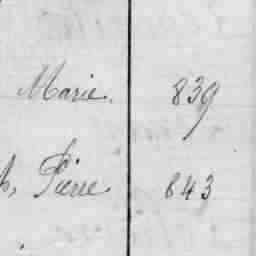 Marie. 839
Pierre 843